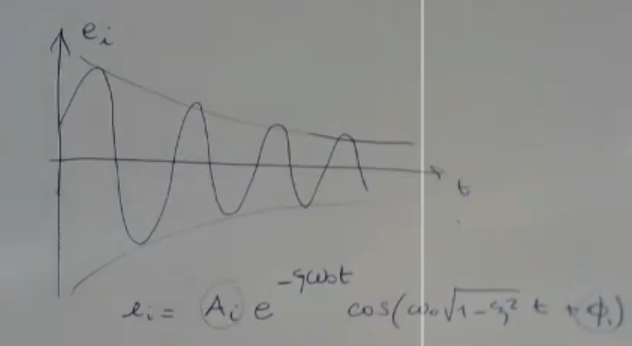 e_i
t
e_i = A_i e^{-ζω_0t} cos(ω_0√1-ζ² t + ϕ_i)